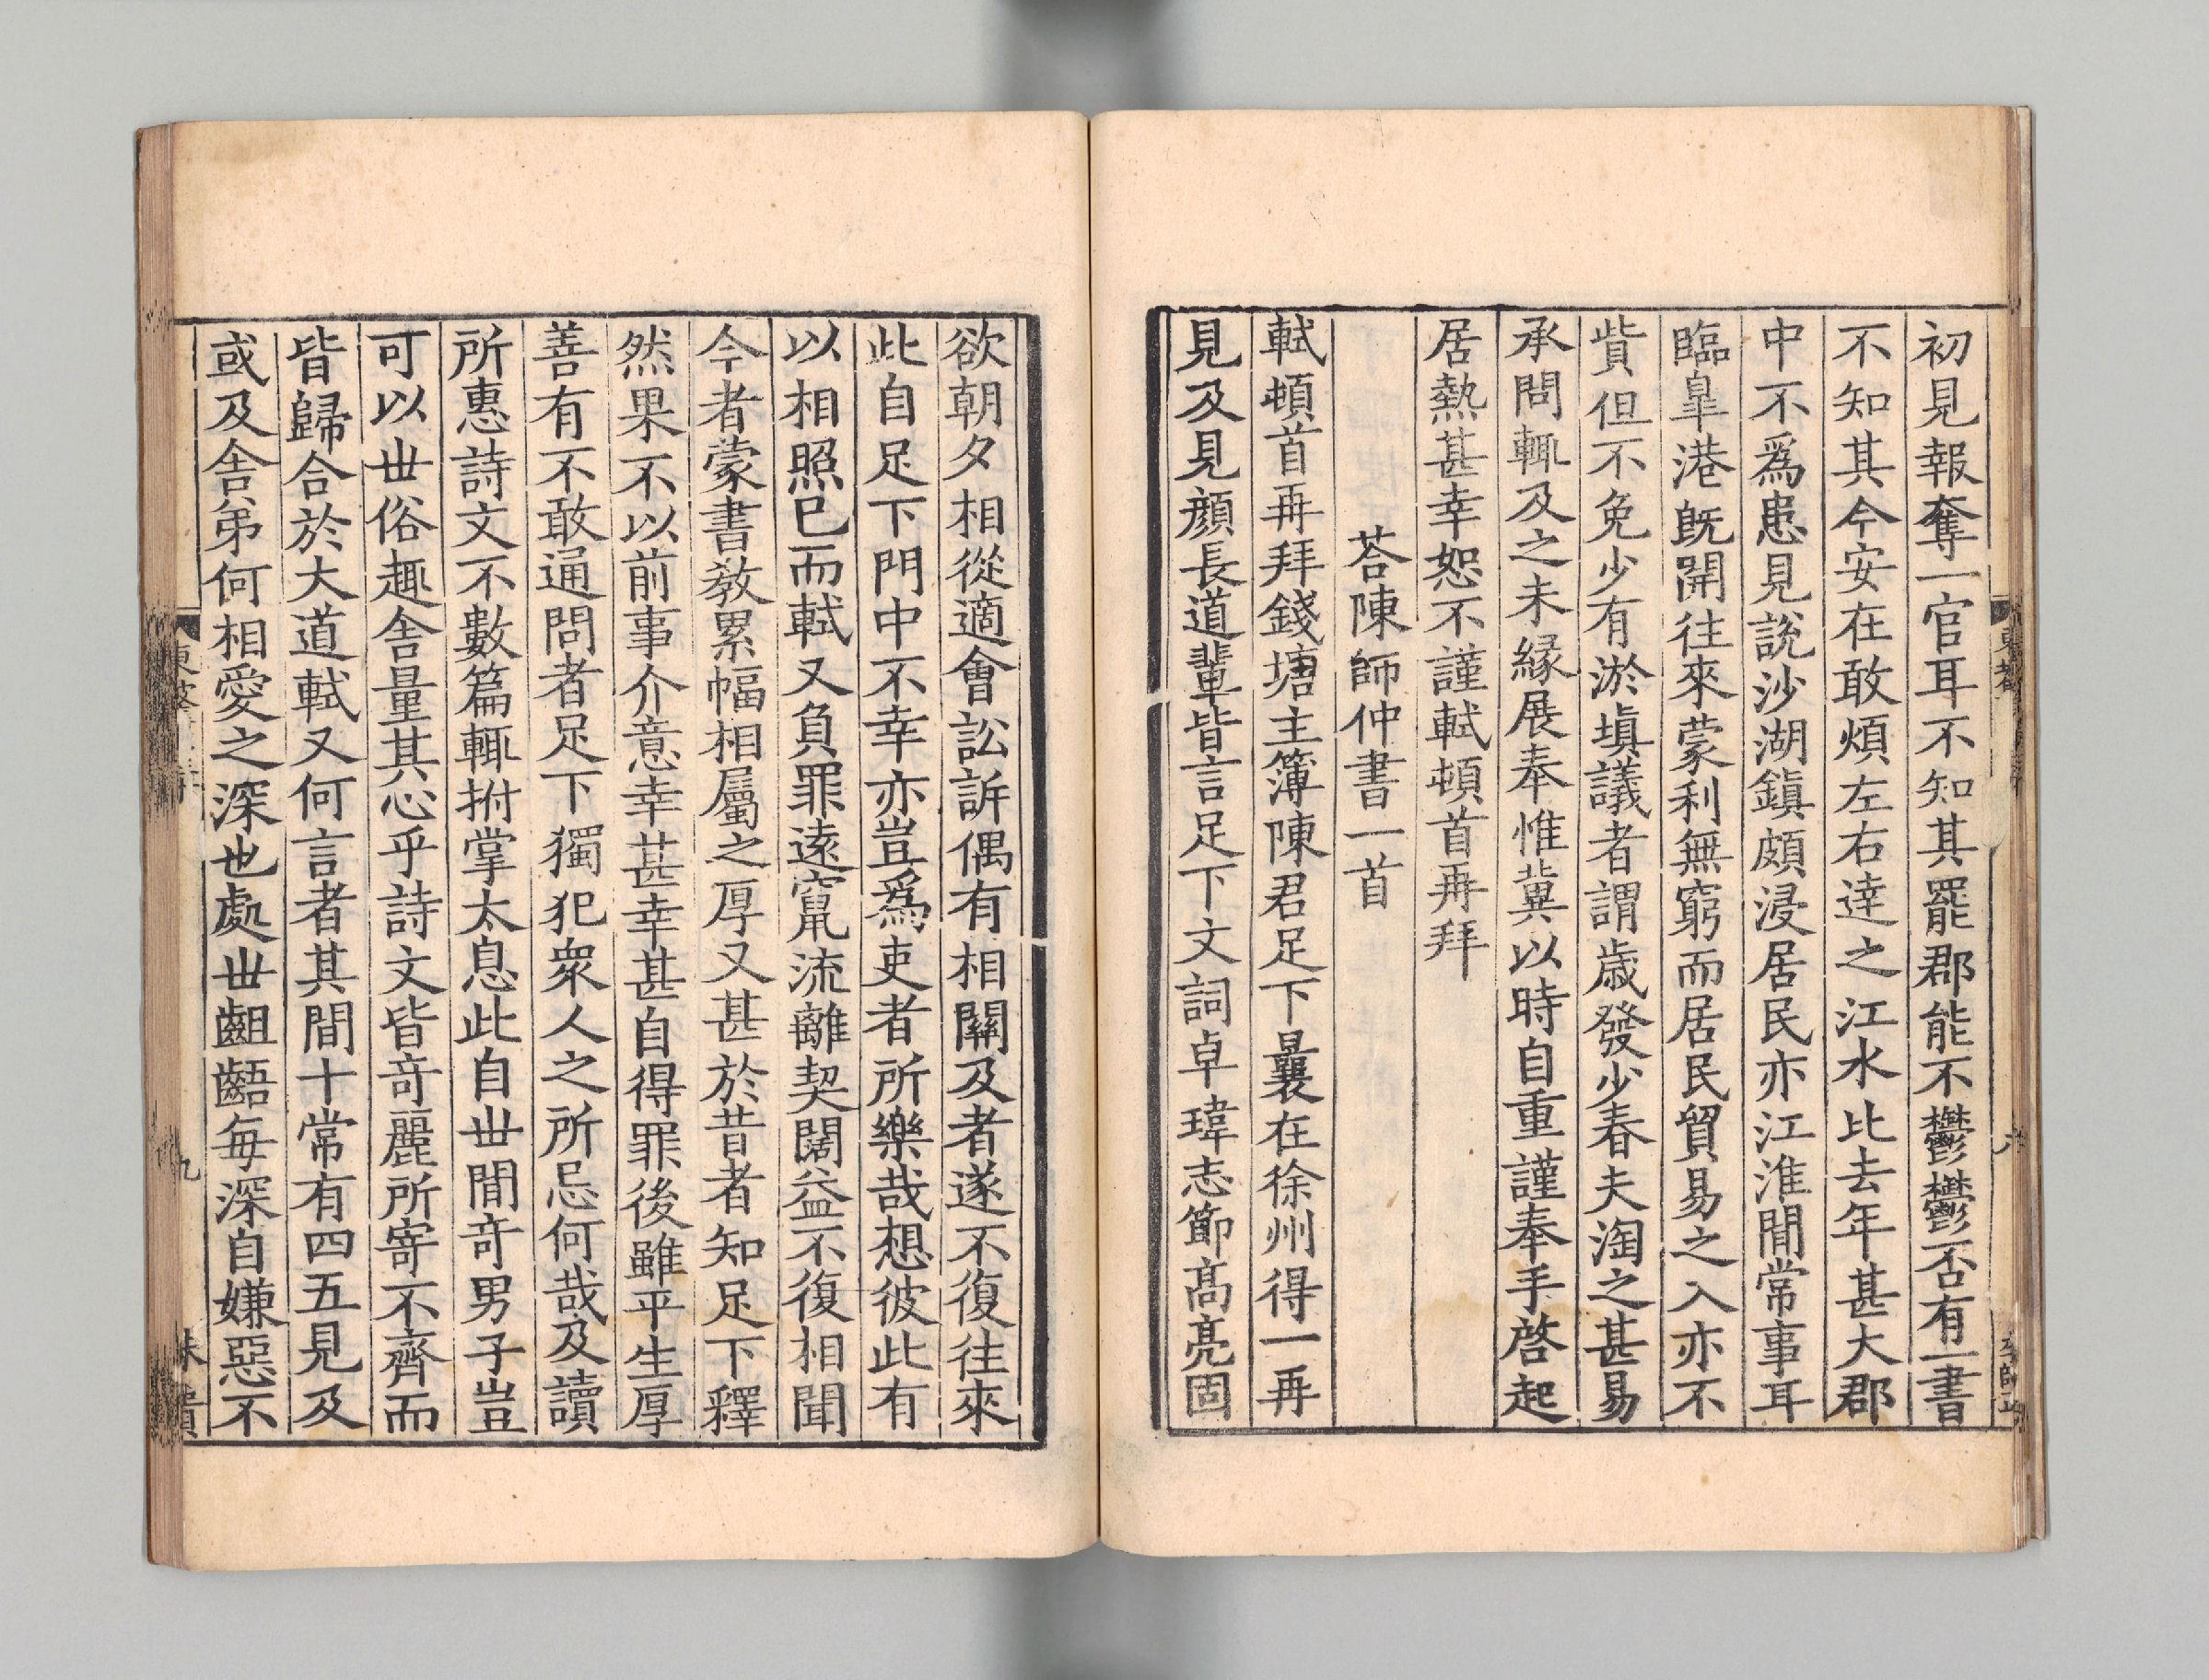 初見報奪一官耳不知其罷郡能不鬱鬱否有一書
不知其今安在敢煩左右達之江水比去年甚大郡
中不爲患見說沙湖鎮頗浸居民亦江淮間常事耳
臨臯港旣開往來蒙利無窮而居民貿易之入亦不
貲但不免少有淤塡議者謂歲發少春夫淘之甚易
承問輒及之未緣展奉惟兾以時自重謹奉手啓起
居熱甚幸恕不謹軾頓首再拜
荅陳師仲書一首
軾頓首再拜錢塘主簿陳君足下曩在徐州得一再
見及見顏長道輩皆言足下文詞卓瑋志節高亮固
欲朝夕相從適會訟訴偶有相關及者遂不復往來
此自足下門中不幸亦豈爲吏者所樂哉想彼此有
以相照已而軾又負罪遠竄流離契闊益不復相聞
今者蒙書敎累幅相屬之厚又甚於昔者知足下釋
然果不以前事介意幸甚幸甚自得罪後雖平生厚
善有不敢通問者足下獨犯衆人之所忌何哉及讀
所惠詩文不數篇輒拊掌太息此自世間竒男子豈
可以世俗趣舍量其心乎詩文皆竒麗所寄不齊而
皆歸合於大道軾又何言者其間十常有四五見及
或及舍弟何相愛之深也處世齟齬每深自嫌惡不
九